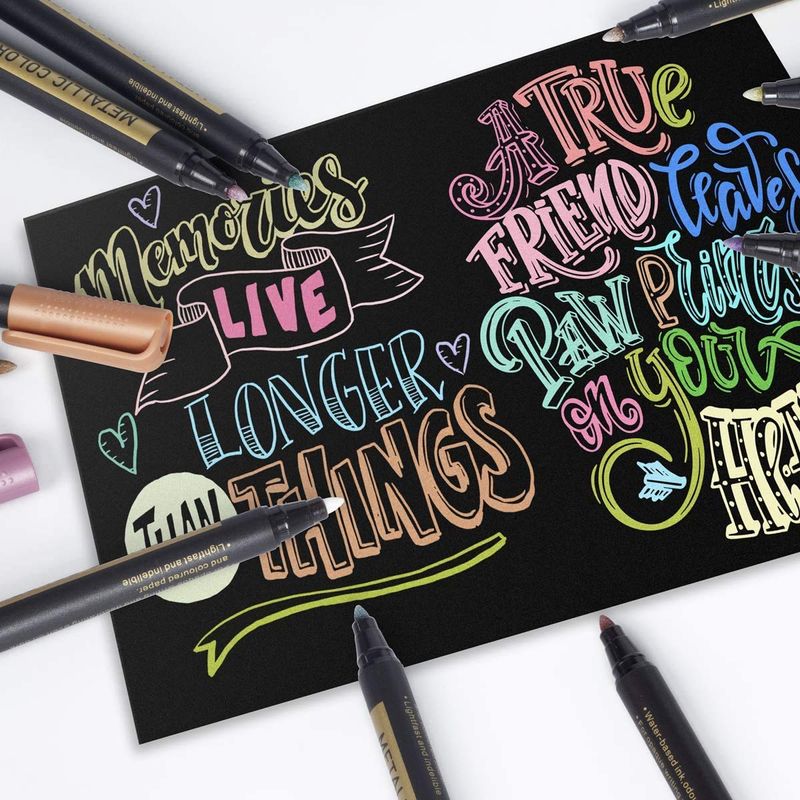 METALLIC COLOR
and coloured paper.
• Lightfast and indelible
Memories
LIVE
LONGER
THAN
THINGS
A TRUe
FRIEND leaves
PAW Prints
on your
and coloured paper.
• Lightfast and indelible
• Lightfast and indelible
METAL
• Water-based ink,
For opaque writing